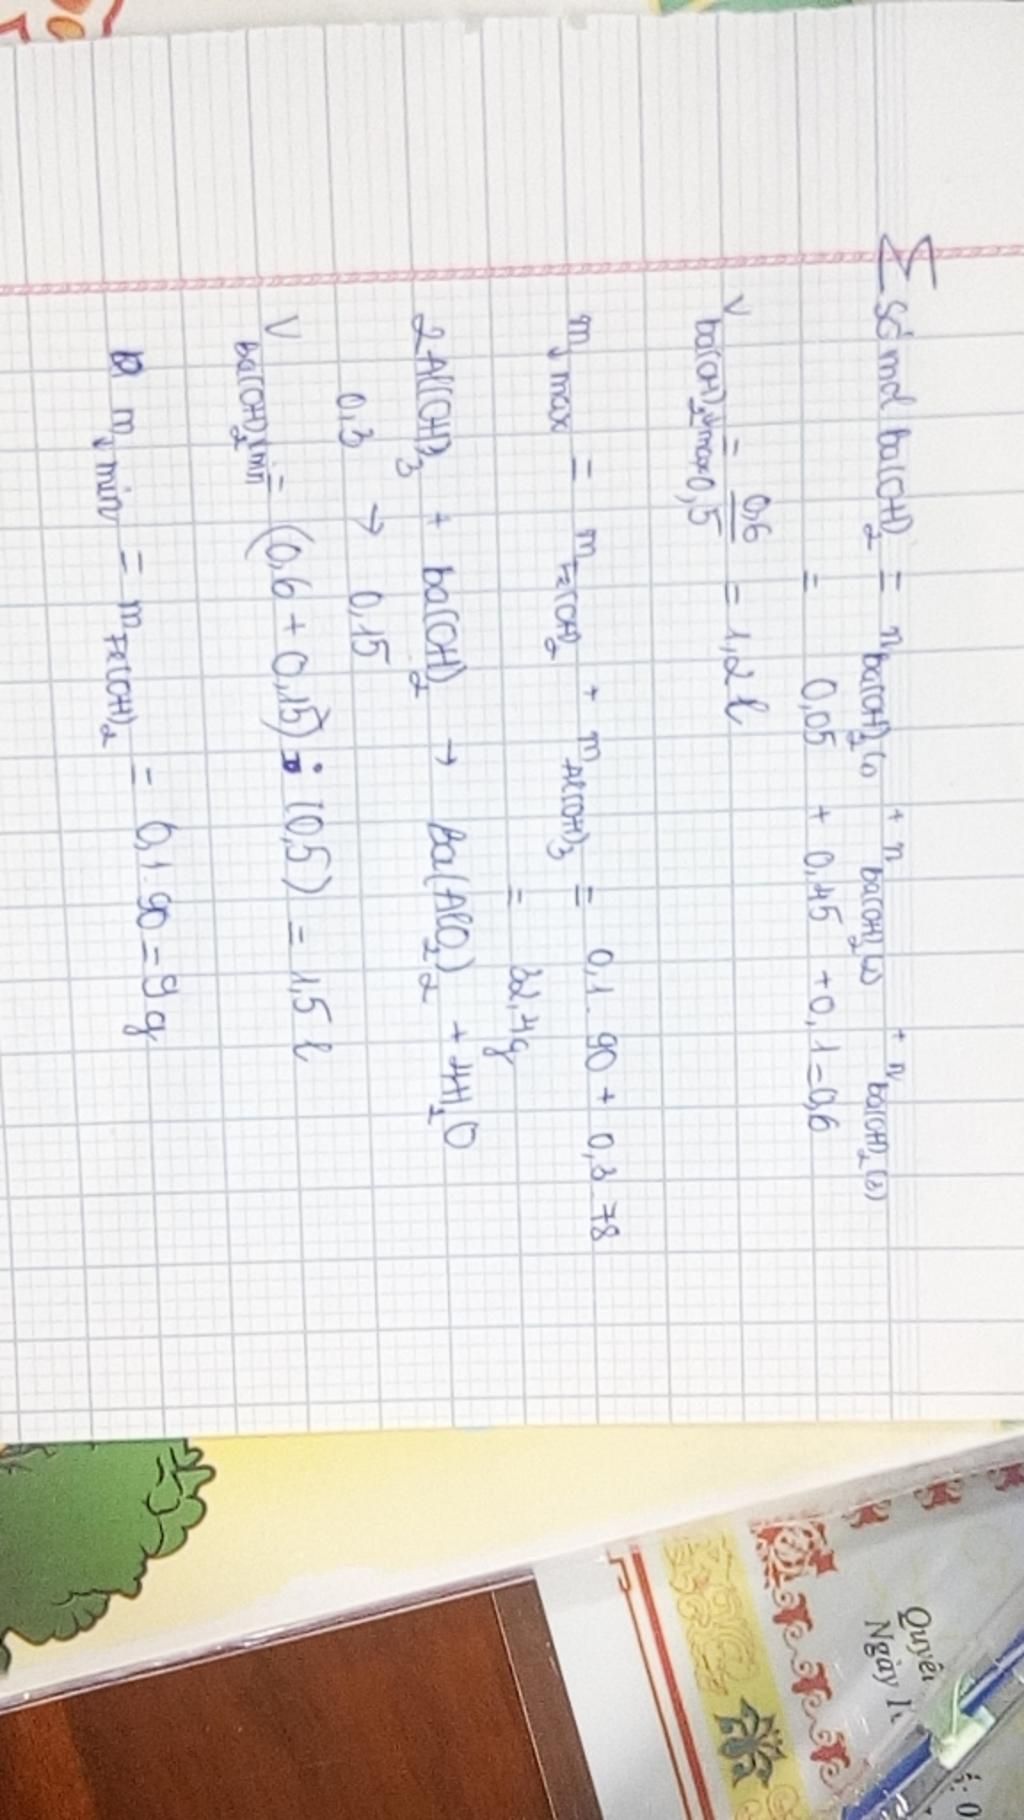 ∑ số mol ba(OH)₂ = n ba(OH)₂(1) + n ba(OH)₂(2) + n ba(OH)₂(3)
= 0,05 + 0,45 + 0,1 = 0,6
V ba(OH)₂↓max = 0,6/0,5 = 1,2 l
m↓ max = m Fe(OH)₂ + m Al(OH)₃ = 0,1 . 90 + 0,3 . 78
= 32,4g
2Al(OH)₃ + ba(OH)₂ → Ba(AlO₂)₂ + 4H₂O
0,3 → 0,15
V ba(OH)₂↓min = (0,6 + 0,15) : (0,5) = 1,5 l
m↓ min = m Fe(OH)₂ = 0,1 . 90 = 9 g
Quyể
Ngày